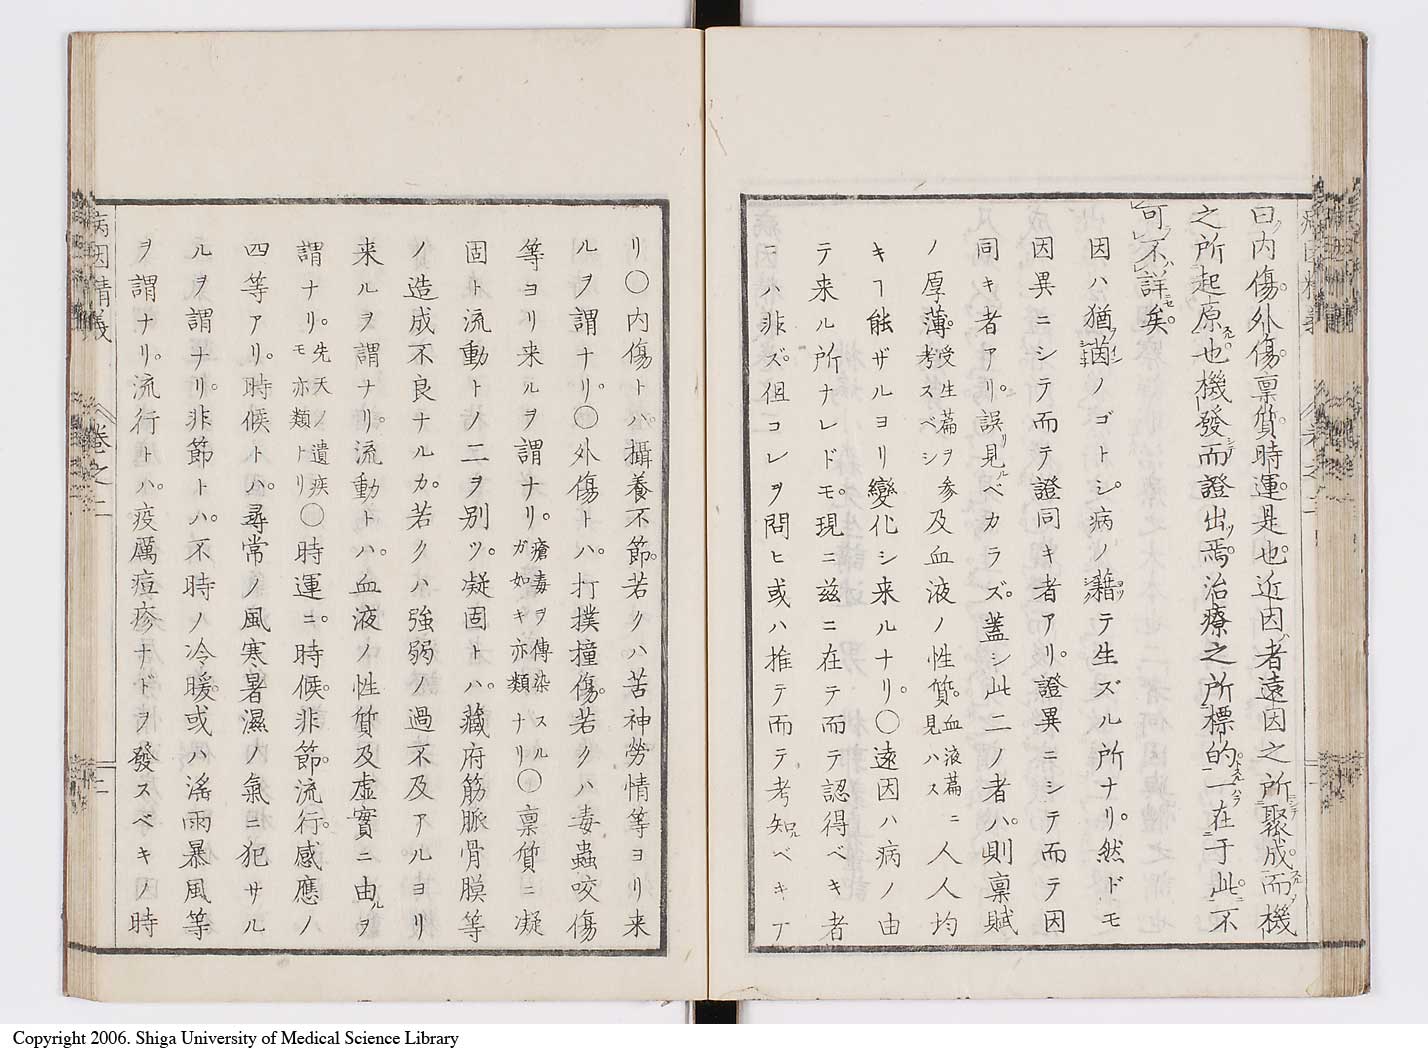 曰ク内傷外傷禀質時運是也近因者遠因之所聚成而機
之所起原也機發而證出焉治療之所標的一在于此不
可不詳矣
因ハ猶茵ノゴトシ病ノ藉テ生ズル所ナリ然ドモ
因異ニシテ而テ證同キ者アリ證異ニシテ而テ因
同キ者アリ誤リ見ルベカラズ蓋シ此二ノ者ハ則禀賦
ノ厚薄受生篇ヲ参考スベシ及血液ノ性質血液篇ニ見ハス人人均
キヿ能ザルヨリ變化シ来ルナリ〇遠因ハ病ノ由
テ来ル所ナレドモ現ニ茲ニ在テ而テ認得ベキ者
ニハ非ズ但コレヲ問ヒ或ハ推テ而テ考知ルベキノ
病因精義
卷之二
リ〇内傷トハ攝養不節若クハ苦神勞情等ヨリ来
ルヲ謂ナリ〇外傷トハ打撲撞傷若クハ毒蟲咬傷
等ヨリ来ルヲ謂ナリ瘡毒ヲ傳染スルガ如キ亦類ナリ〇禀質ニ凝
固ト流動トノ二ヲ別ツ凝固トハ藏府筋脈骨膜等
ノ造成不良ナルカ若クハ強弱ノ過不及アルヨリ
来ルヲ謂ナリ流動トハ血液ノ性質及虚實ニ由ルヲ
謂ナリ先天ノ遺疾モ亦類トリ〇時運ニ時候非節流行感應ノ
四等アリ時候トハ尋常ノ風寒暑濕ノ氣ニ犯サル
ルヲ謂ナリ非節トハ不時ノ冷暖或ハ滛雨暴風等
ヲ謂ナリ流行トハ疫厲痘疹ナドヲ發スベキノ時
病因精義
卷之二
二
Copyright 2006. Shiga University of Medical Science Library